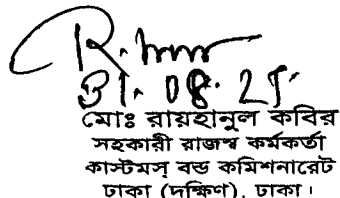 31.08.25
মোঃ রায়হানুল কবির
সহকারী রাজস্ব কর্মকর্তা
কাস্টমস্ বন্ড কমিশনারেট
ঢাকা (দক্ষিণ), ঢাকা।